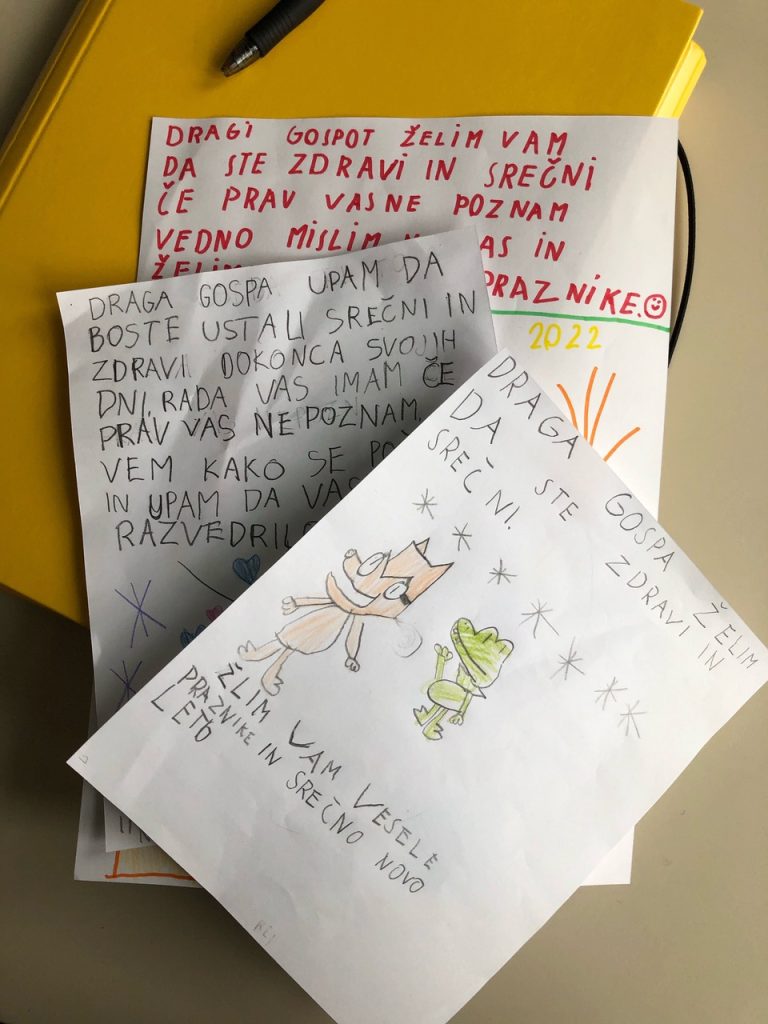 DRAGI GOSPOT ŽELIM VAM
DA STE ZDRAVI IN SREČNI
ČE PRAV VAS NE POZNAM
VEDNO MISLIM IN
ŽELIM PRAZNIKE.
2022
DRAGA GOSPA UPAM DA
BOSTE USTALI SREČNI IN
ZDRAVI DOKONCA SVOJIH
DNI, RADA VAS IMAM ČE
PRAV VAS NE POZNAM.
VEM KAKO SE
IN UPAM DA VAS
DRAGA GOSPA ŽELIM
DA STE ZDRAVI IN
SREČNI.
ŽELIM VAM VESELE
PRAZNIKE IN SREČNO NOVO
LETO